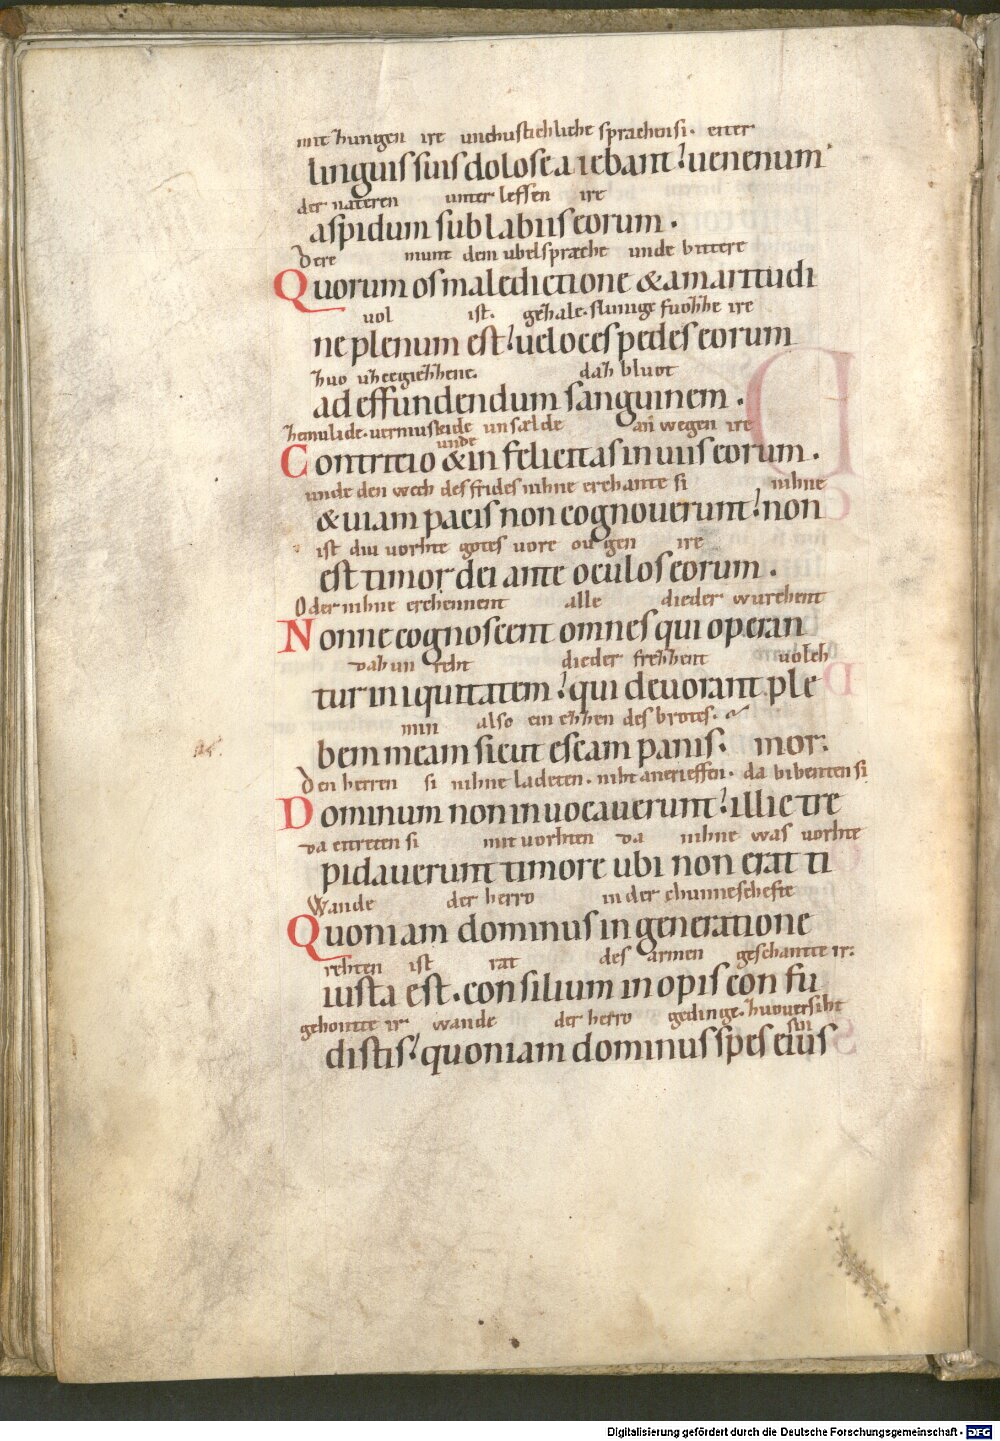 mit zungen ire unchustichliche sprachensi. eiter
linguis suis dolose a iebant. uenenum
der nateren unter leffen ire
aspidum sub labiis eorum.
dere munt dem ubelsprache unde bittere
Quorum os maledictione & amaritudi
uol ist. gehale. sliunige fuozze ire
ne plenum est. ueloces pedes eorum
zuo uzcegiezzene. daz bluot
ad effundendum sanguinem.
unsælde an wegen ire
unde
Contritio & infelicitas in uiis eorum.
unde den wech des frides nihne erchante si nihne
& uiam pacis non cognouerunt. non
ist diu uorhte gotes uore ougen ire
est timor dei ante oculos eorum.
Oder nihne erchennent alle dieder wurchent
Nonne cognoscent omnes qui operan
daz un reht dieder frezzent uolch
tur iniquitatem. qui deuorant ple
min also ein ezzen des brotes.
bem meam sicut escam panis. mor:
den herren si nihne ladeten. niht anerieffen. da bibenten si
Dominum non inuocauerunt. illic tre
da eitreten si mit uorhten da nihne was uorhte
pidauerunt timore ubi non erat ti
Wande der herro in der chunneschefte
Quoniam dominus in generatione
rehten ist rat des armen geschantte ir:
iusta est. consilium inopis confu
gehontte ir wande der herro gedinge. zuouersiht
sin
distis. quoniam dominus spes eius
Digitalisierung gefördert durch die Deutsche Forschungsgemeinschaft - DFG